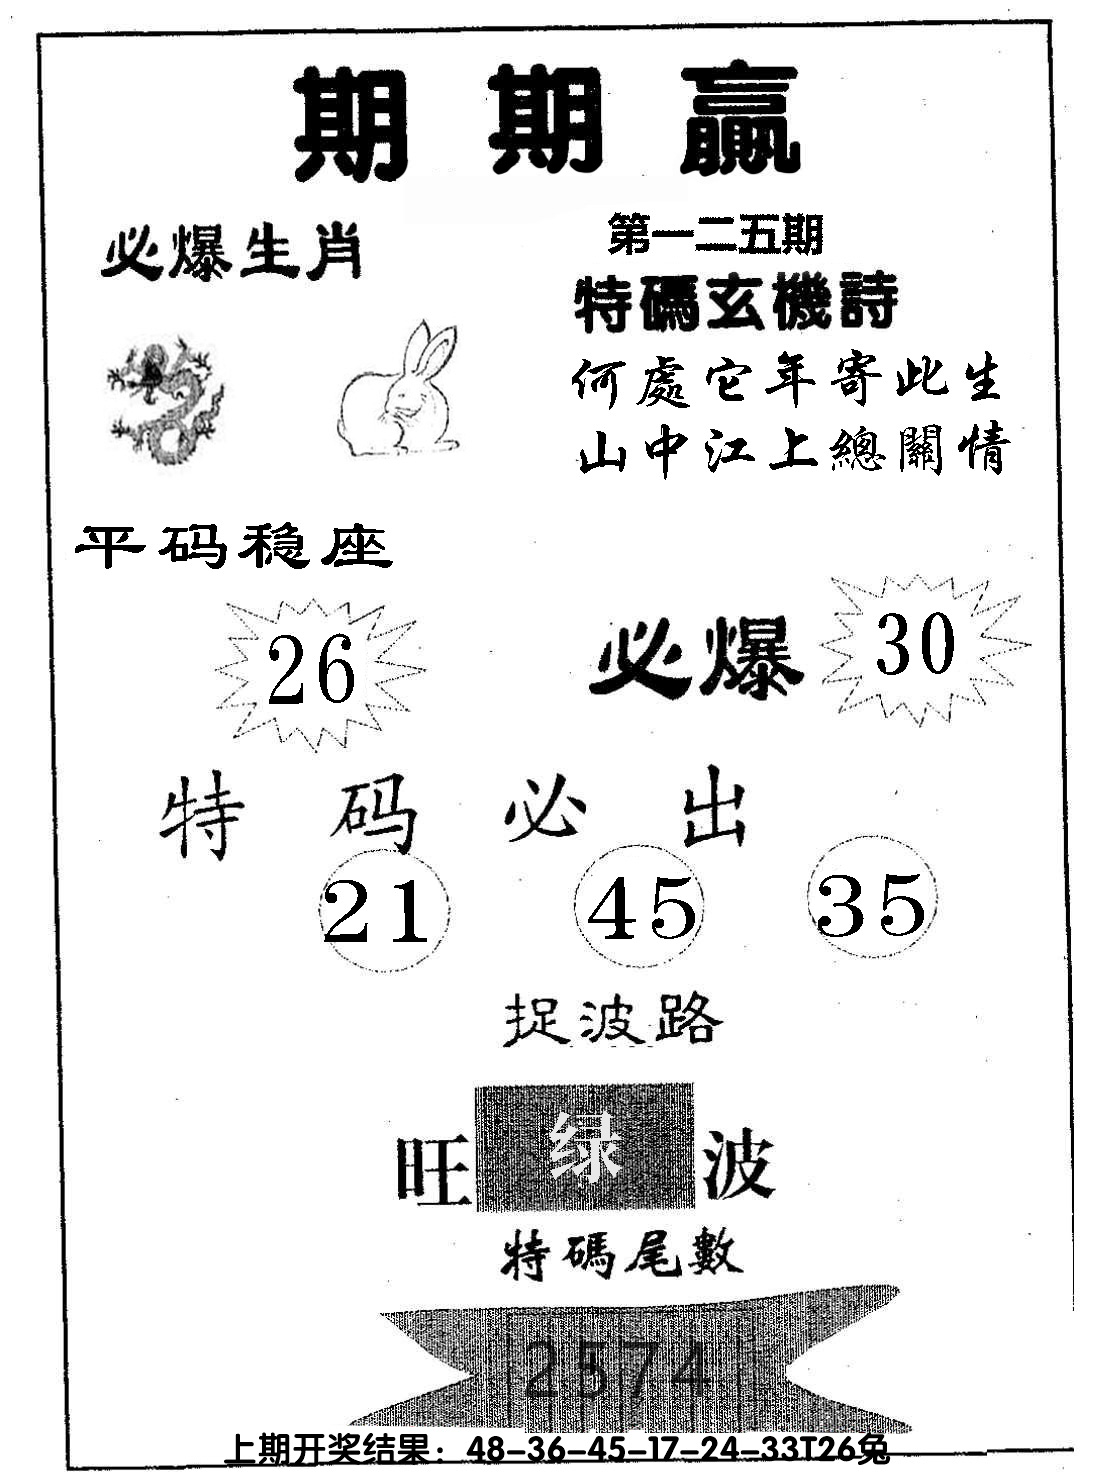 期期赢
第一二五期
必爆生肖
特碼玄機詩
何處它年寄此生
山中江上總關情
平码稳座
26
必爆 30
特码必出
21 45 35
捉波路
旺 绿 波
特碼尾數
2574
上期开奖结果：48-36-45-17-24-33T26兔